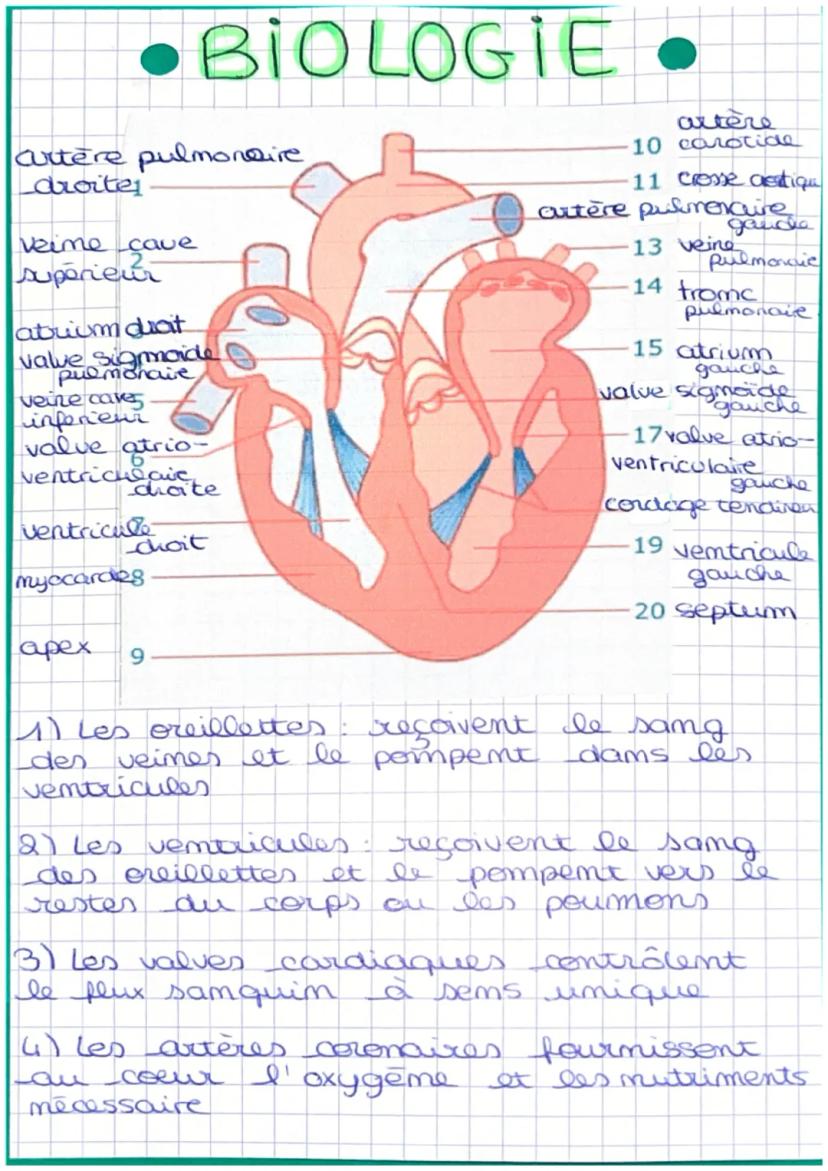 BiOLOGiE
artère pulmonaire
droite 1
veine cave
2
supérieur
atrium droit
valve sigmoïde
pulmonaire
veine cave 5
inférieur
valve atrio-
6
ventriculaire
droite
ventricule 7
droit
myocarde 8
apex 9
artère
10 carotide
11 crosse aortique
artère pulmonaire
gauche
13 veine
pulmonaire
14 tronc
pulmonaire
15 atrium
gauche
valve sigmoïde
gauche
17 valve atrio-
ventriculaire
gauche
cordage tendineu
19 ventricule
gauche
20 septum
1) Les oreillettes : reçoivent le sang
des veines et le pompent dans les
ventricules
2) Les ventricules : reçoivent le sang
des oreillettes et le pompent vers le
restes du corps ou les poumons
3) Les valves cardiaques contrôlent
le flux sanguin à sens unique
4) Les artères coronaires fournissent
au coeur l'oxygène et les nutriments
nécessaire